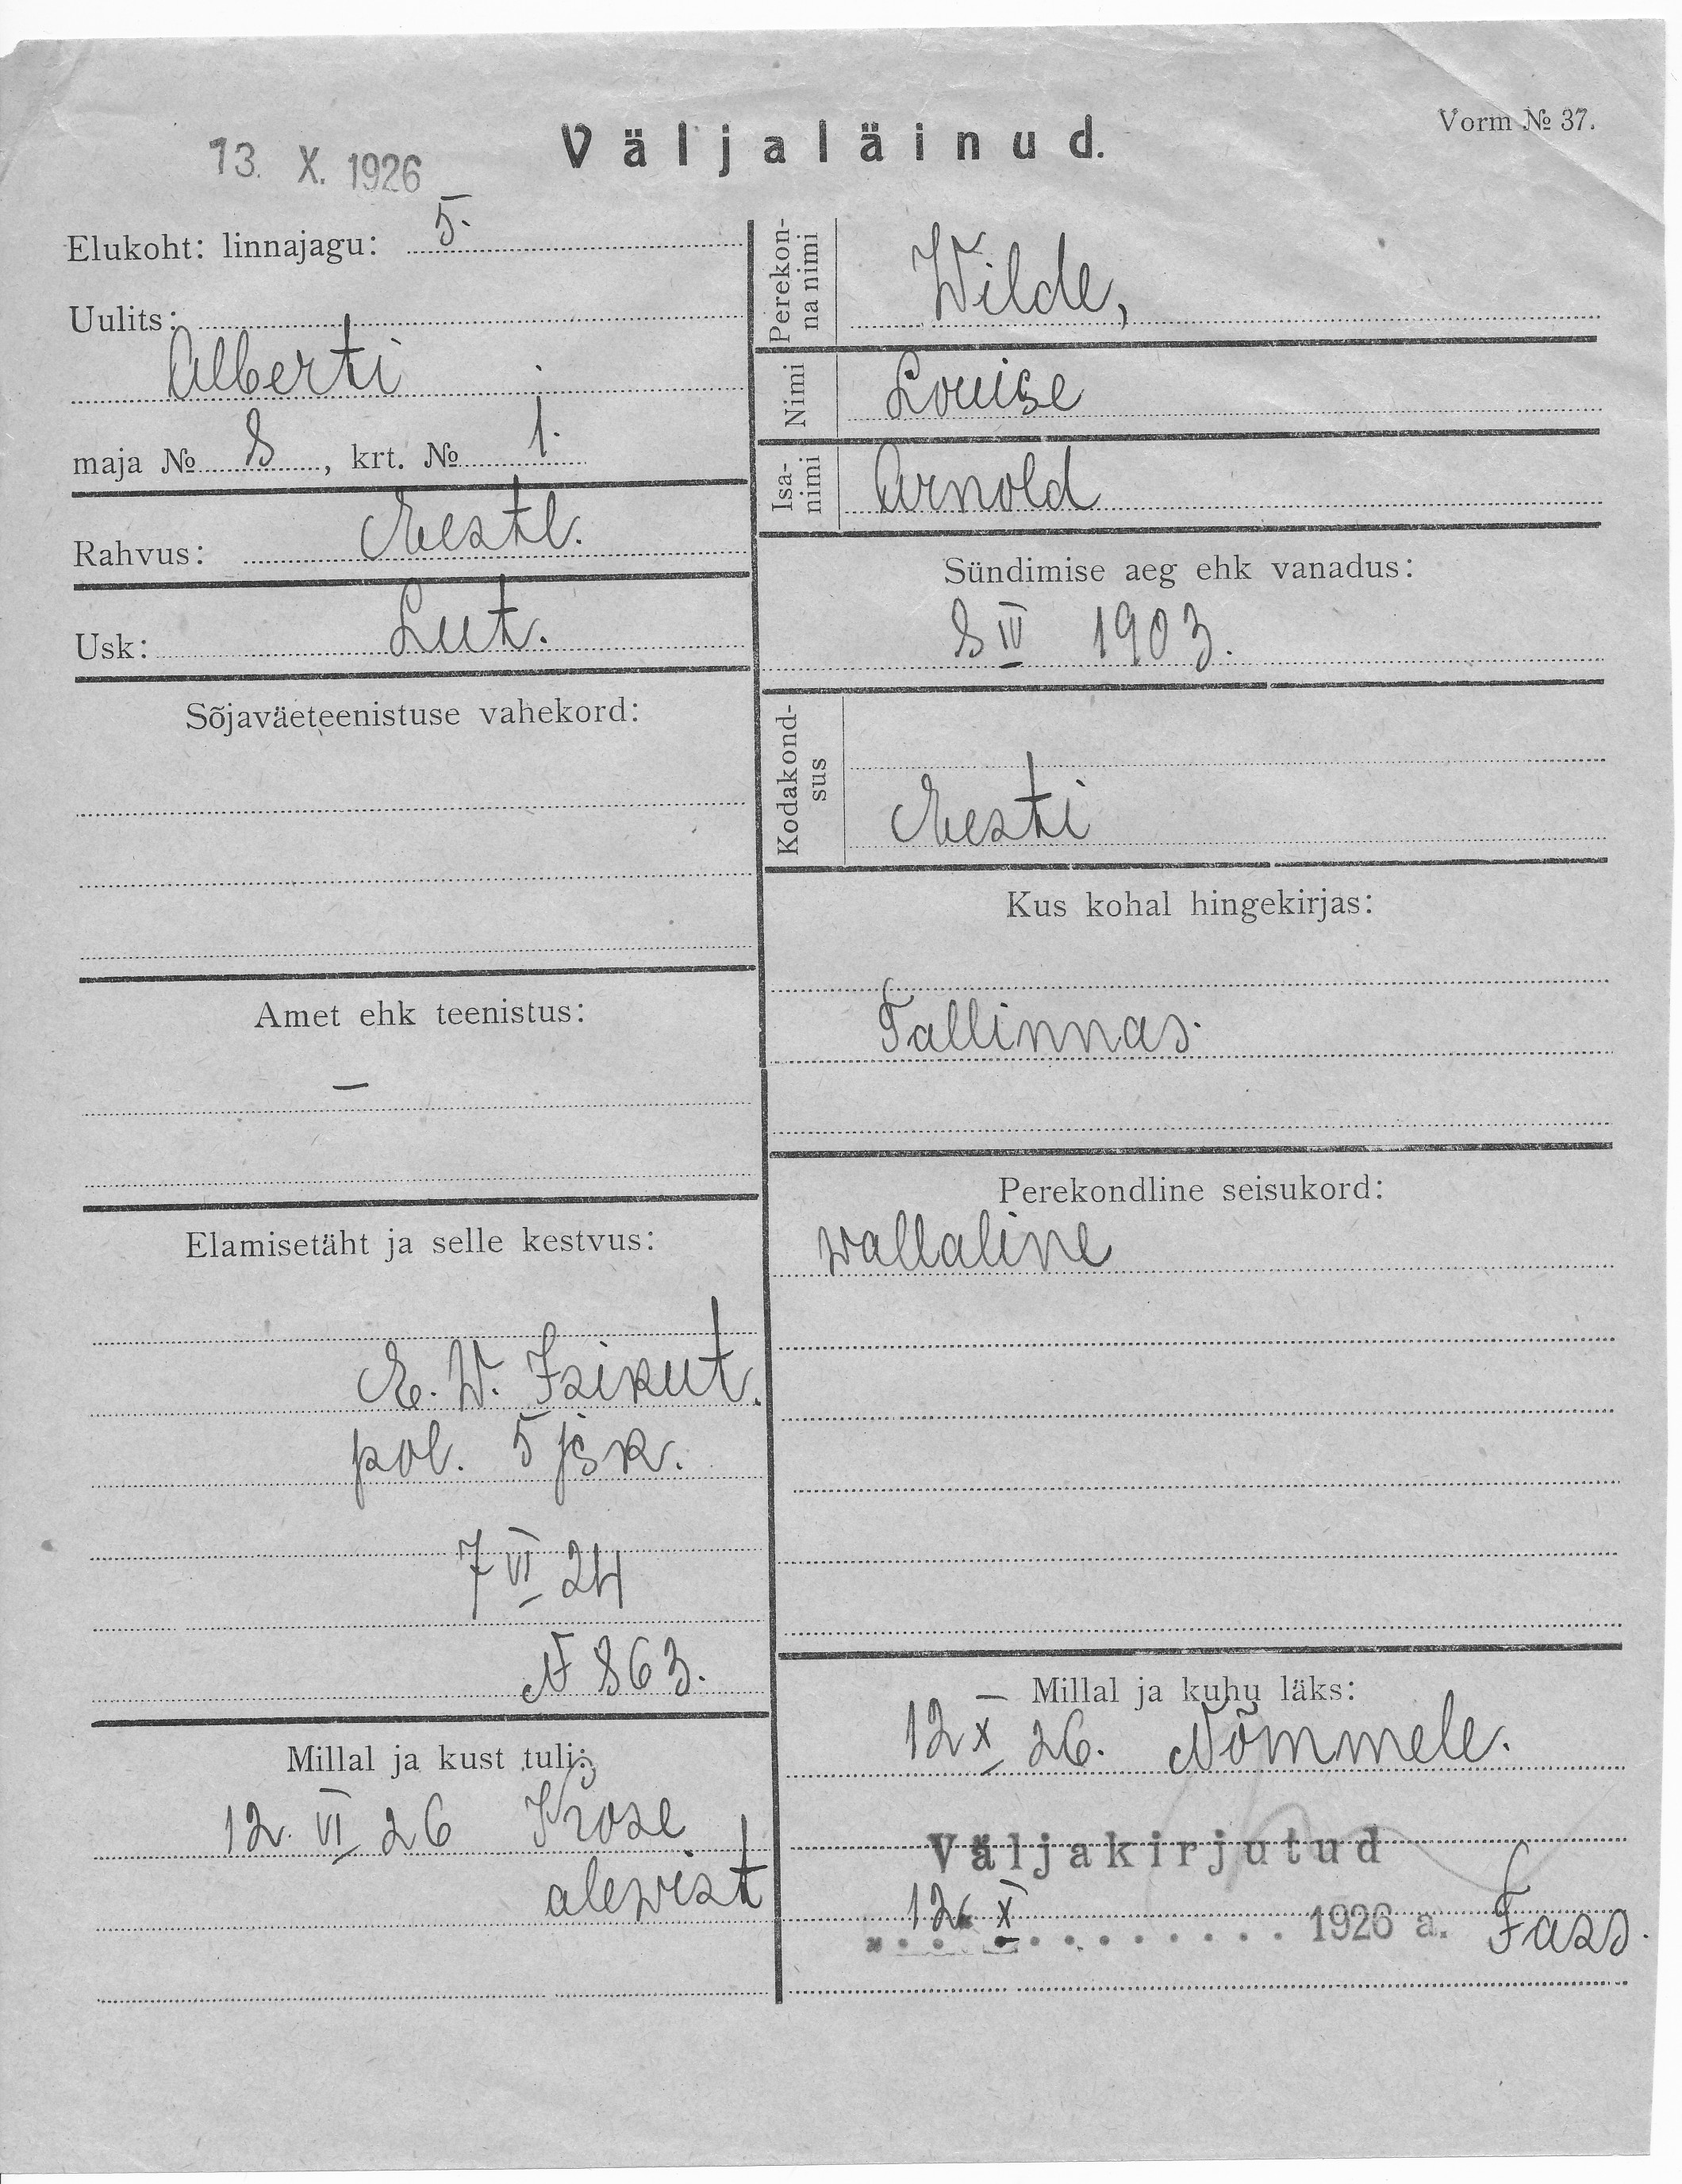 Vorm № 37.
Väljaläinud.
13. X. 1926
Elukoht: linnajagu: 5.
Uulits:
Alberti
maja № 8, krt. № 1.
Rahvus: Eestl.
Usk: Lut.
Sõjaväeteenistuse vahekord:
Amet ehk teenistus:
—
Elamisetäht ja selle kestvus:
E. W. Isikut.
pol. 5 jsk.
7 VI 24
N 863.
Millal ja kust tuli:
12. VI 26 Kose
alewist
Perekon-
na nimi
Wilde,
Nimi Louise
Isa-
nimi
Arnold
Sündimise aeg ehk vanadus:
8 IV 1903.
Kodakond-
sus
Eesti
Kus kohal hingekirjas:
Tallinnas.
Perekondline seisukord:
wallaline
Millal ja kuhu läks:
12 X 26. Nõmmele.
Väljakirjutud
12. X 1926 a.